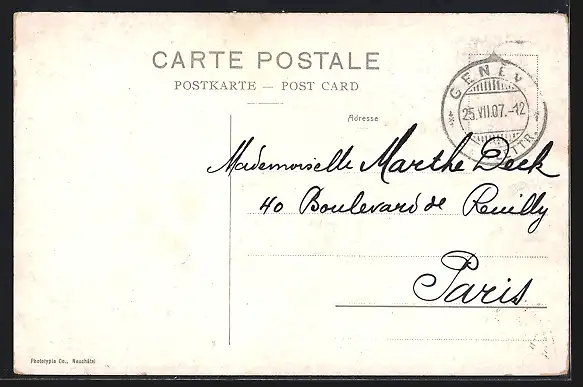 CARTE POSTALE
POSTKARTE — POST CARD
GENÈV
25.VII.07.-12
TTR.
Adresse
Mademoiselle Marthe Deck
40 Boulevard de Reuilly
Paris
Phototypie Co., Neuchâtel